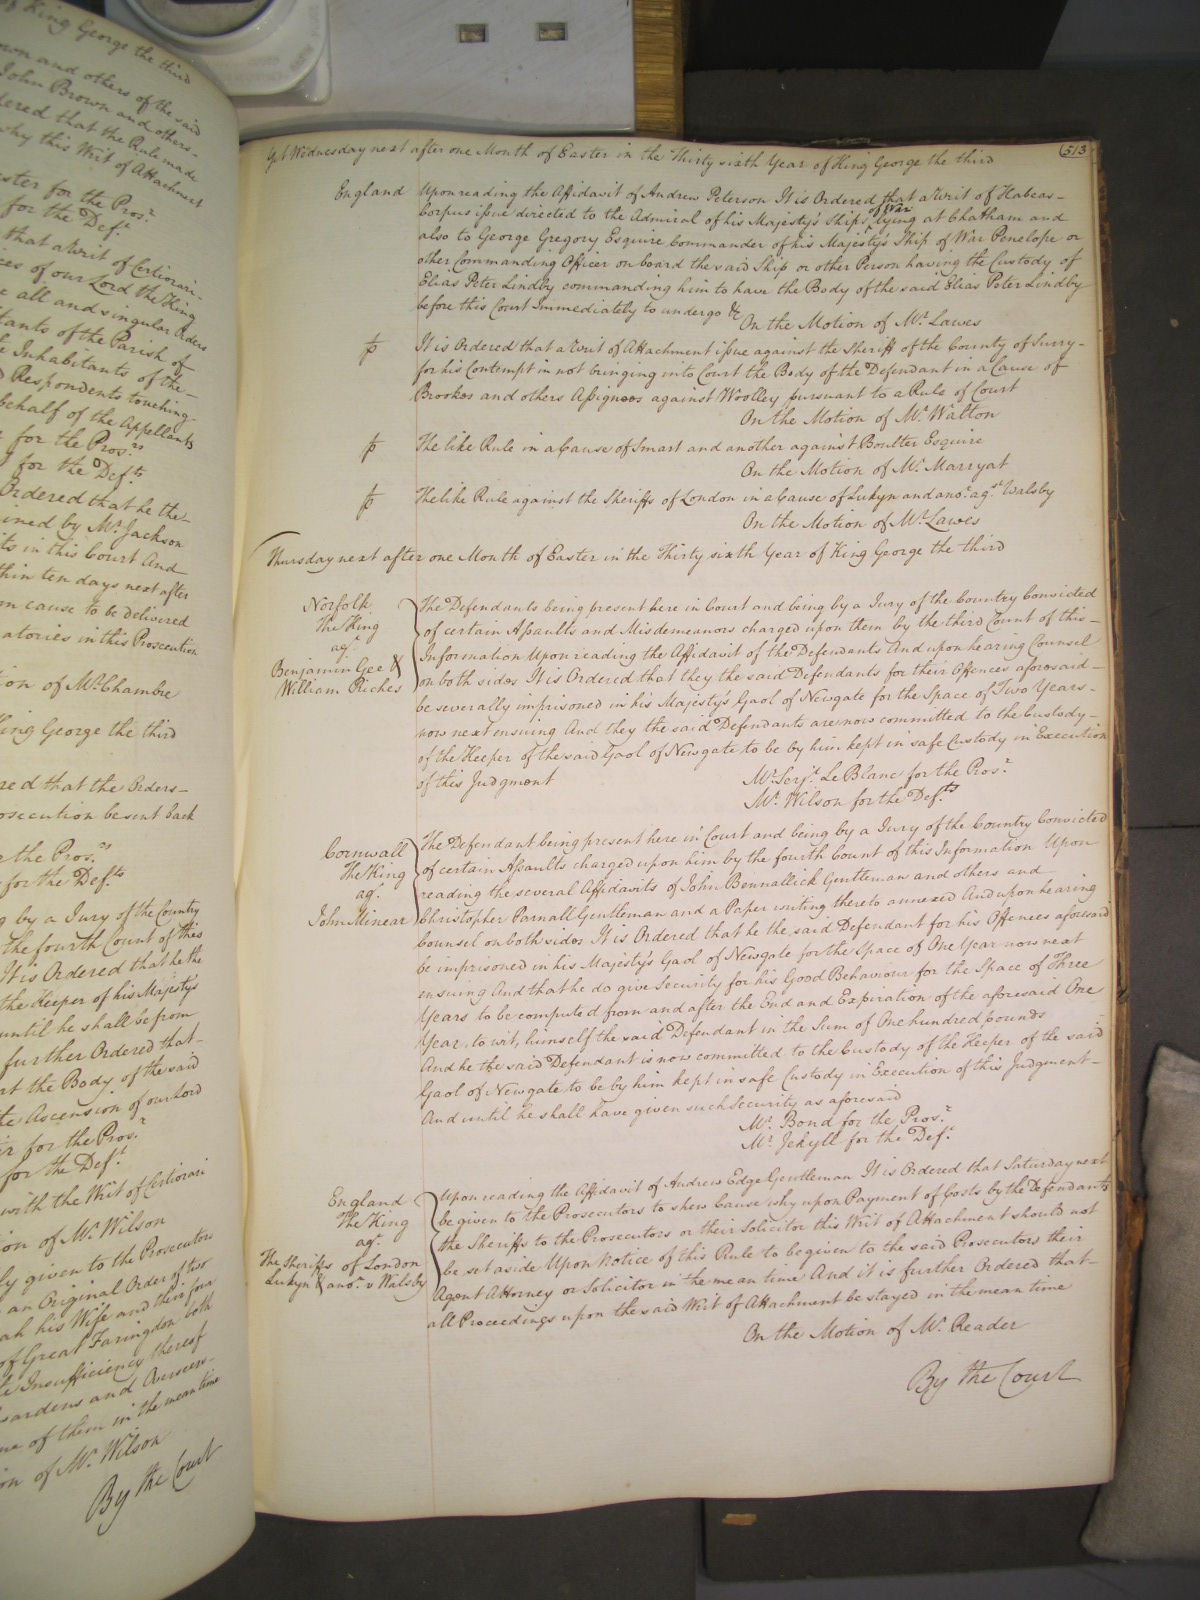 of King George the third
own and others of the said
John Brown and others
dered that the Rule made
why this Writ of Attachment
ster for the Pros.r
for the Def.t
that a Writ of Certiorari
ces of our Lord the King
e all and singular Orders
tants of the Parish of
e Inhabitants of the
d Respondents touching
behalf of the Appellants
for the Pros.rs
for the Def.ts
Ordered that he the
ined by Mr. Jackson
ts in this Court And
thin ten days next after
n cause to be delivered
atories in this Prosecution
ion of Mr. Chambre
King George the third
red that the Orders
osecution be sent back
r the Pros.rs
for the Def.ts
g by a Jury of the Country
the fourth Count of this
It is Ordered that he the
the Keeper of his Majesty's
until he shall be from
further Ordered that
rt the Body of the said
the Ascension of our Lord
er for the Pros.r
for the Def.t
with the Writ of Certiorari
ion of Mr. Wilson
ly given to the Prosecutors
an Original Order of two
ah his Wife and their four
of Great Faringdon both
the Insufficiency thereof
wardens and Overseers
me of them in the mean time
ion of Mr. Wilson
By the Court
513
Yet Wednesday next after one Month of Easter in the Thirty sixth Year of King George the third
England
Upon reading the Affidavit of Andrew Peterson It is Ordered that a Writ of Habeas
Corpus issue directed to the Admiral of his Majesty's Ships of War lying at Chatham and
also to George Gregory Esquire Commander of his Majesty's Ship of War Penelope or
other Commanding Officer on board the said Ship or other Person having the Custody of
Elias Peter Lindby commanding him to have the Body of the said Elias Peter Lindby
before this Court Immediately to undergo &c
On the Motion of Mr. Lawes
It is Ordered that a Writ of Attachment issue against the Sheriff of the County of Surry
for his Contempt in not bringing into Court the Body of the Defendant in a Cause of
Brookes and others Assignees against Woolley pursuant to a Rule of Court
On the Motion of Mr. Walton
The like Rule in a Cause of Smart and another against Boulter Esquire
On the Motion of Mr. Marryat
The like Rule against the Sheriffs of London in a Cause of Lukyn and ano.r ag.st Walsby
On the Motion of Mr. Lawes
Thursday next after one Month of Easter in the Thirty sixth Year of King George the third
Norfolk
The King
ag.t
Benjamin Gee &
William Riches
The Defendants being present here in Court and being by a Jury of the Country Convicted
of certain Assaults and Misdemeanors charged upon them by the third Count of this
Information Upon reading the Affidavit of the Defendants And upon hearing Counsel
on both sides It is Ordered that they the said Defendants for their Offences aforesaid
be severally imprisoned in his Majesty's Gaol of Newgate for the Space of Two Years
now next ensuing And they the said Defendants are now committed to the Custody
of the Keeper of the said Gaol of Newgate to be by him kept in safe Custody in Execution
of this Judgment
Mr. Serj.t Le Blanc for the Pros.r
Mr. Wilson for the Def.ts
Cornwall
The King
ag.t
John Minear
The Defendant being present here in Court and being by a Jury of the Country Convicted
of certain Assaults charged upon him by the fourth Count of this Information Upon
reading the several Affidavits of John Bennallick Gentleman and others and
Christopher Parnall Gentleman and a Paper writing thereto annexed And upon hearing
Counsel on both sides It is Ordered that he the said Defendant for his Offences aforesaid
be imprisoned in his Majesty's Gaol of Newgate for the Space of One Year now next
ensuing And that he do give Security for his Good Behaviour for the Space of Three
Years to be computed from and after the End and Expiration of the aforesaid One
Year, to wit, himself the said Defendant in the Sum of One hundred pounds
And he the said Defendant is now committed to the Custody of the Keeper of the said
Gaol of Newgate to be by him kept in safe Custody in Execution of this Judgment
And until he shall have given such Security as aforesaid
Mr. Bond for the Pros.r
Mr. Jekyll for the Def.t
England
The King
ag.t
The Sheriffs of London
Lukyn & ano.r v Walsby
Upon reading the Affidavit of Andrew Edge Gentleman It is Ordered that Saturday next
be given to the Prosecutors to shew Cause why upon Payment of Costs by the Defendants
the Sheriffs to the Prosecutors or their Solicitor this Writ of Attachment should not
be set aside Upon Notice of this Rule to be given to the said Prosecutors their
Agent Attorney or Solicitor in the mean time And it is further Ordered that
all Proceedings upon the said Writ of Attachment be stayed in the mean time
On the Motion of Mr. Reader
By the Court